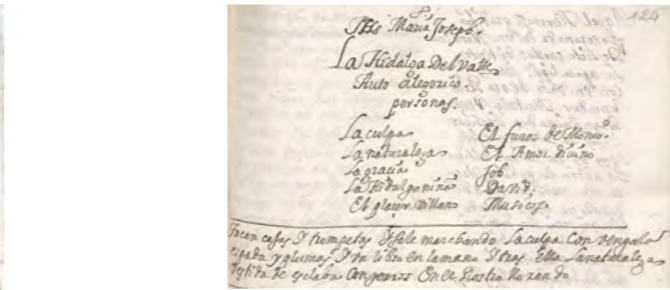 124
Jhs Maria Joseph.
La Hidalga del Valle
Auto alegorico
personas.
La culpa
La naturaleza
La gracia
La Hidalga niña
El placer villano
El furor de Demo
El Amor divino
Job
David
Musicos
Tocan cajas y trompetas y sale marchando La culpa con vengala
espada y plumas y un libro en la mano y tras ella La naturaleza
vestida de esclava con yerros en el Rostro llorando